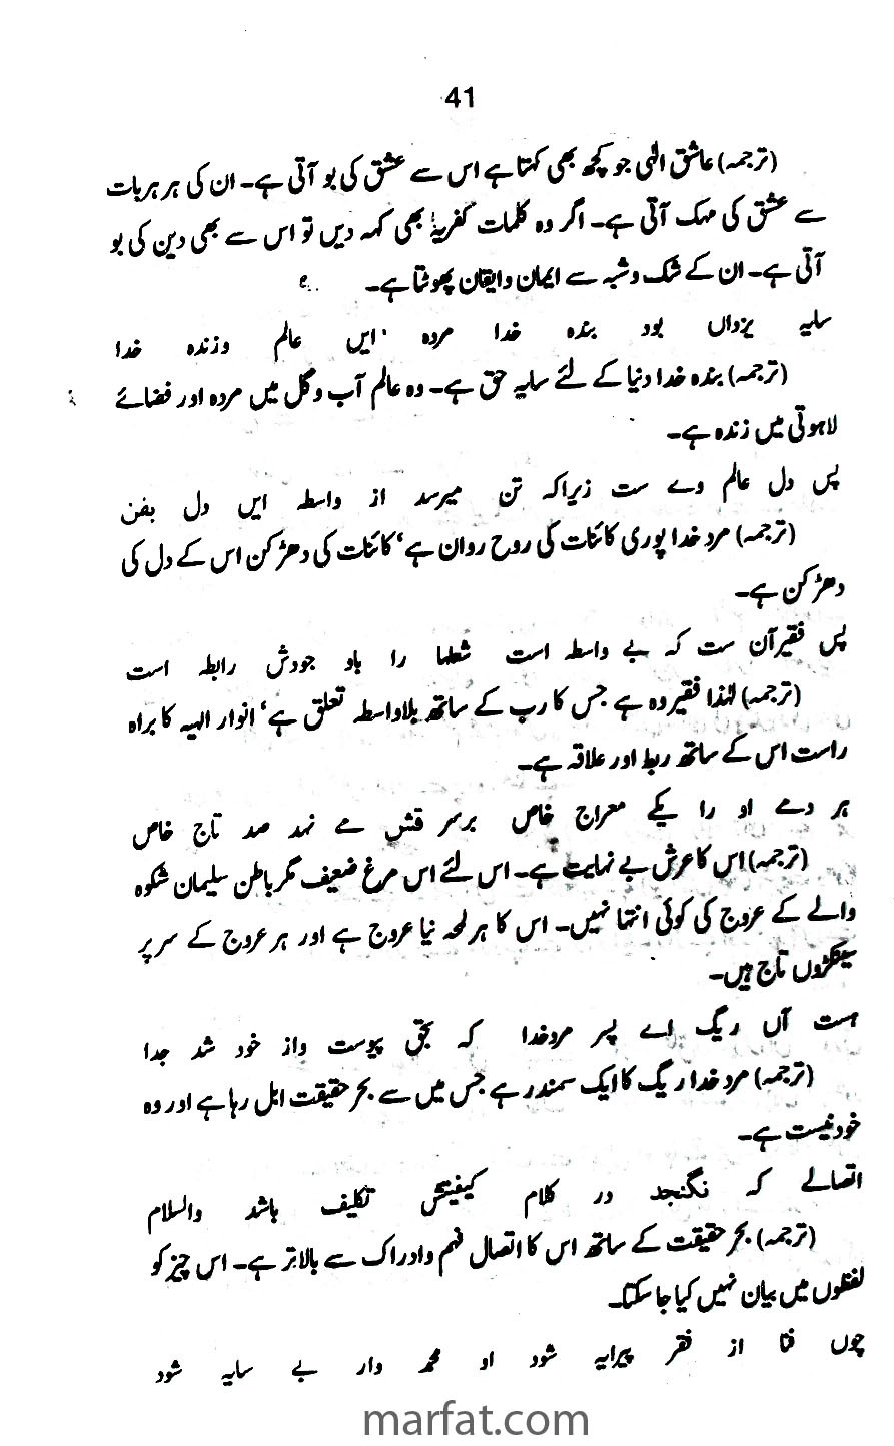 41
(ترجمہ) عاشق الٰہی جو کچھ بھی کہتا ہے اس سے عشق کی بو آتی ہے۔ ان کی ہر ہر بات
سے عشق کی مہک آتی ہے۔ اگر وہ کلمات کفریہ بھی کہہ دیں تو اس سے بھی دین کی بو
آتی ہے۔ ان کے شک و شبہ سے ایمان و ایقان پھوٹتا ہے۔
سایہ یزداں بود بندہ خدا مردہ ایں عالم وزندہ خدا
(ترجمہ) بندہ خدا دنیا کے لئے سایہ حق ہے۔ وہ عالم آب و گل میں مردہ اور فضائے
لاہوتی میں زندہ ہے۔
پس دل عالم وے ست زیراکہ تن میرسد از واسطہ ایں دل بفن
(ترجمہ) مرد خدا پوری کائنات کی روح روان ہے، کائنات کی دھڑکن اس کے دل کی
دھڑکن ہے۔
پس فقیر آن ست کہ بے واسطہ است شعلہا را باد جودش رابطہ است
(ترجمہ) لہٰذا فقیر وہ ہے جس کا رب کے ساتھ بلاواسطہ تعلق ہے، انوار الہیہ کا براہ
راست اس کے ساتھ ربط اور علاقہ ہے۔
ہر دمے او را یکے معراج خاص برسر قش مے نہد صد تاج خاص
(ترجمہ) اس کا عرش بے نہایت ہے۔ اس لئے اس مرغ ضعیف مگر باطن سلیمان شکوہ
والے کے عروج کی کوئی انتہا نہیں۔ اس کا ہر لمحہ نیا عروج ہے اور ہر عروج کے سر پر
سینکڑوں تاج ہیں۔
ہست آں ریگ اے پسر مردخدا کہ بحق پیوست واز خود شد جدا
(ترجمہ) مرد خدا ریگ کا ایک سمندر ہے جس میں سے بحر حقیقت ابل رہا ہے اور وہ
خود نیست ہے۔
اتصالے کہ نگنجد در کلام کیفیتش تکلیف باشد والسلام
(ترجمہ) بحر حقیقت کے ساتھ اس کا اتصال فہم و ادراک سے بالاتر ہے۔ اس چیز کو
لفظوں میں بیان نہیں کیا جا سکتا۔
چوں فنا از فقر پیرایہ شود او محمد وار بے سایہ شود
marfat.com